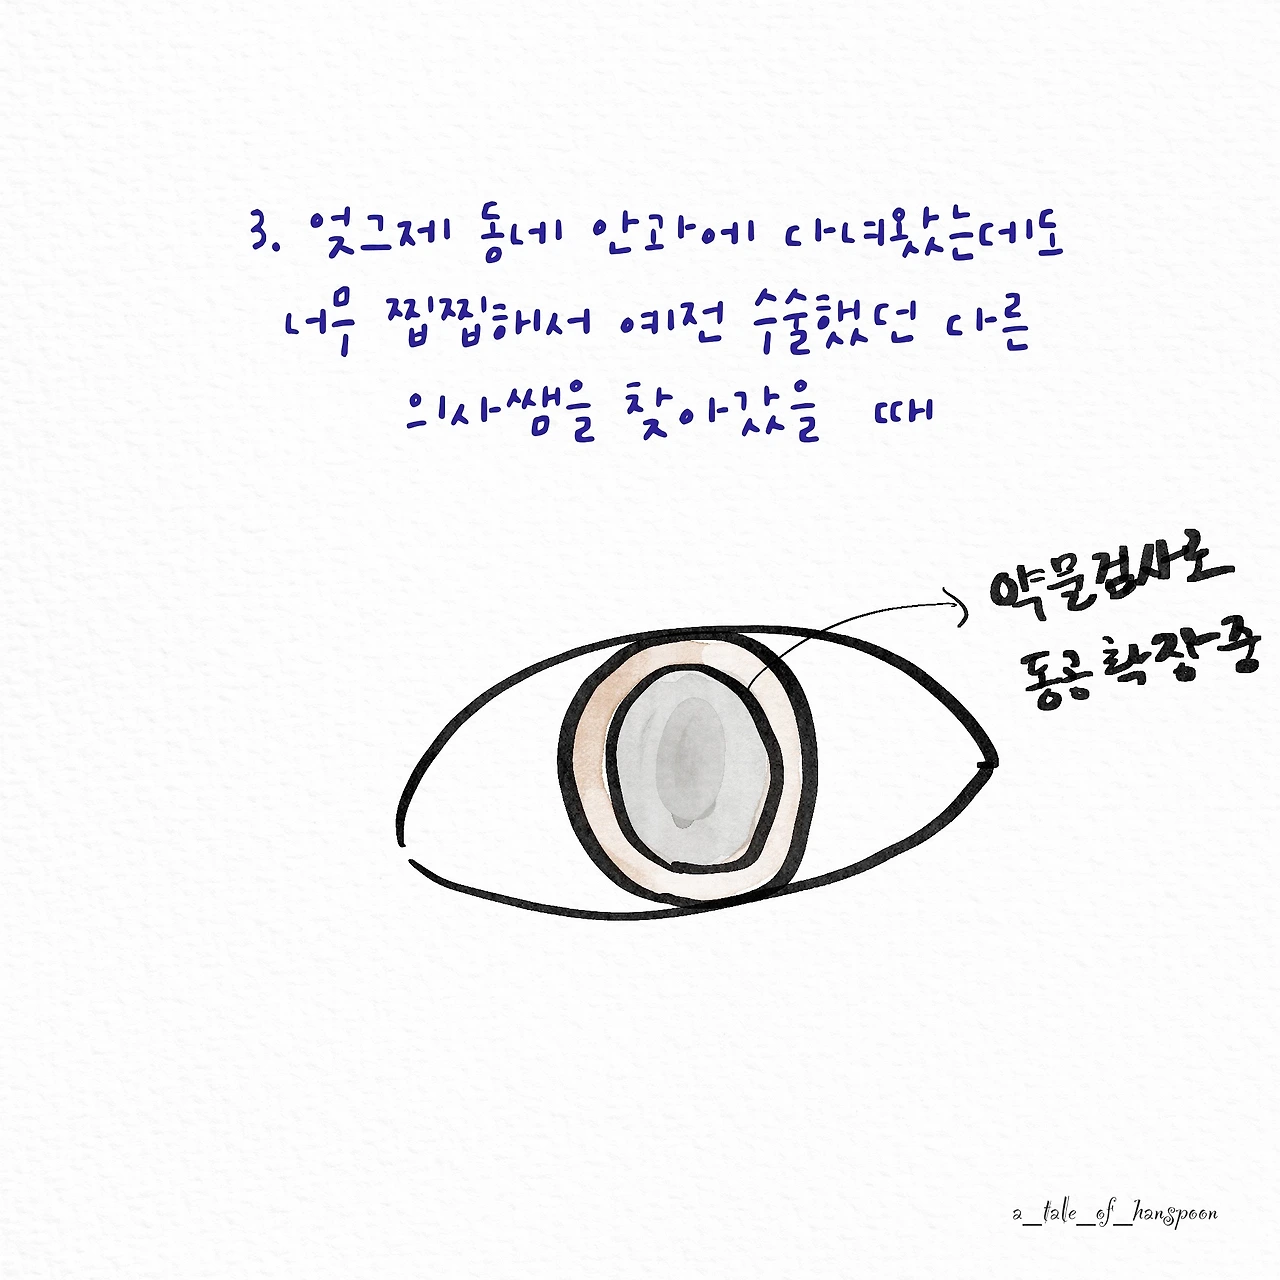 3. 엊그제 동네 안과에 다녀왔는데도
너무 찝찝해서 예전 수술했던 다른
의사쌤을 찾아갔을 때
약물검사로
동공 확장 중
a_tale_of_hanspoon